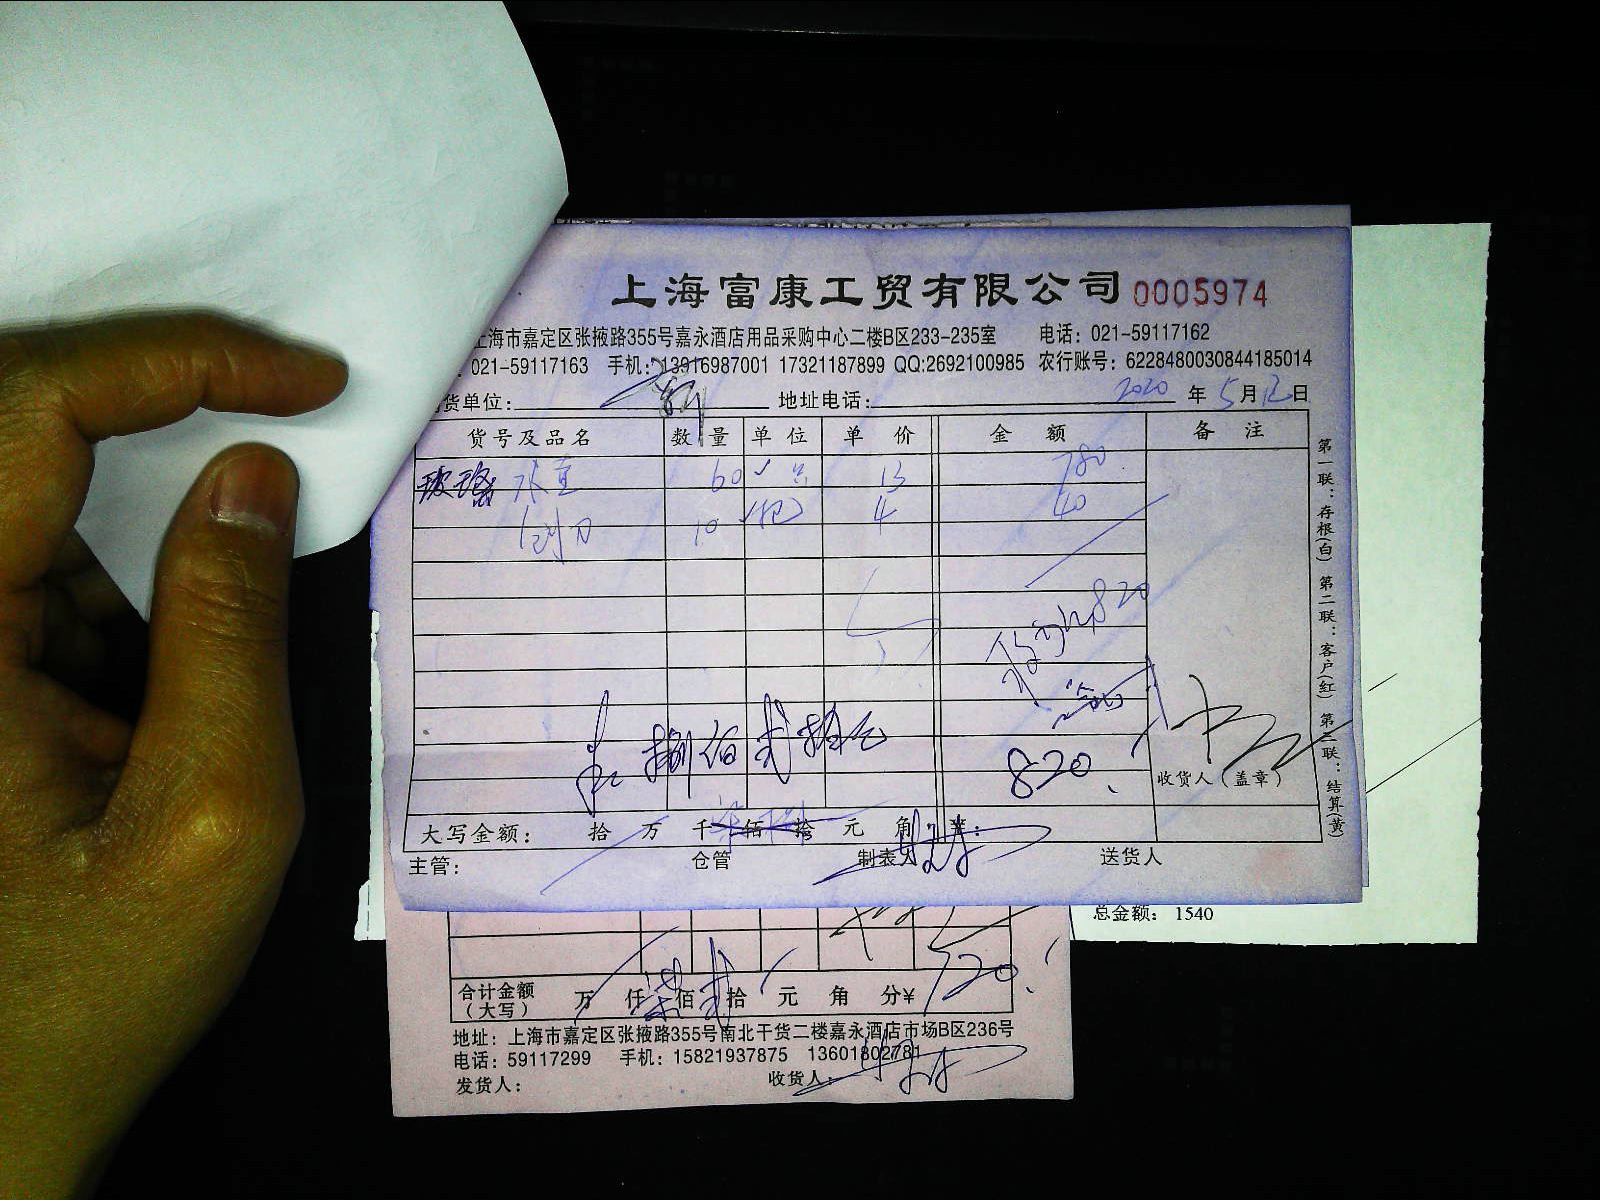 上海富康工贸有限公司 0005974
上海市嘉定区张掖路355号嘉永酒店用品采购中心二楼B区233-235室 电话：021-59117162
：021-59117163 手机：13916987001 17321187899 QQ:2692100985 农行账号：6228480030844185014
货单位： 地址电话： 2020 年 5 月 12 日
货号及品名 数量 单位 单价 金额 备注
玻璃水壶 60 只 13 780
刨刀 10 把 4 40
820
捌佰贰拾元
820
收货人（盖章）
大写金额： 拾 万 千 佰 拾 元 角 ¥：
主管： 仓管 制表人 送货人
第一联：存根（白） 第二联：客户（红） 第三联：结算（黄）
总金额： 1540
合计金额（大写） 万 仟 柒 佰 贰 拾 元 角 分¥ 720
地址：上海市嘉定区张掖路355号南北干货二楼嘉永酒店市场B区236号
电话：59117299 手机：15821937875 13601802781
发货人： 收货人：